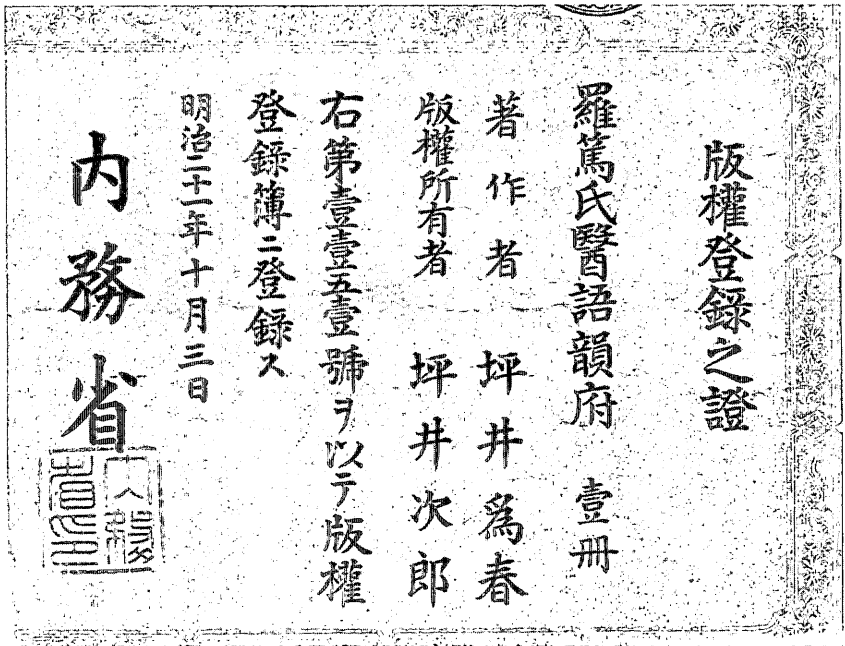 版權登錄之證
羅篤氏醫語韻府 壹冊
著作者 坪井爲春
版權所有者 坪井次郎
右第壹壹五壹號ヲ以テ版權
登錄簿ニ登錄ス
明治二十一年十月三日
内務省
内務省印